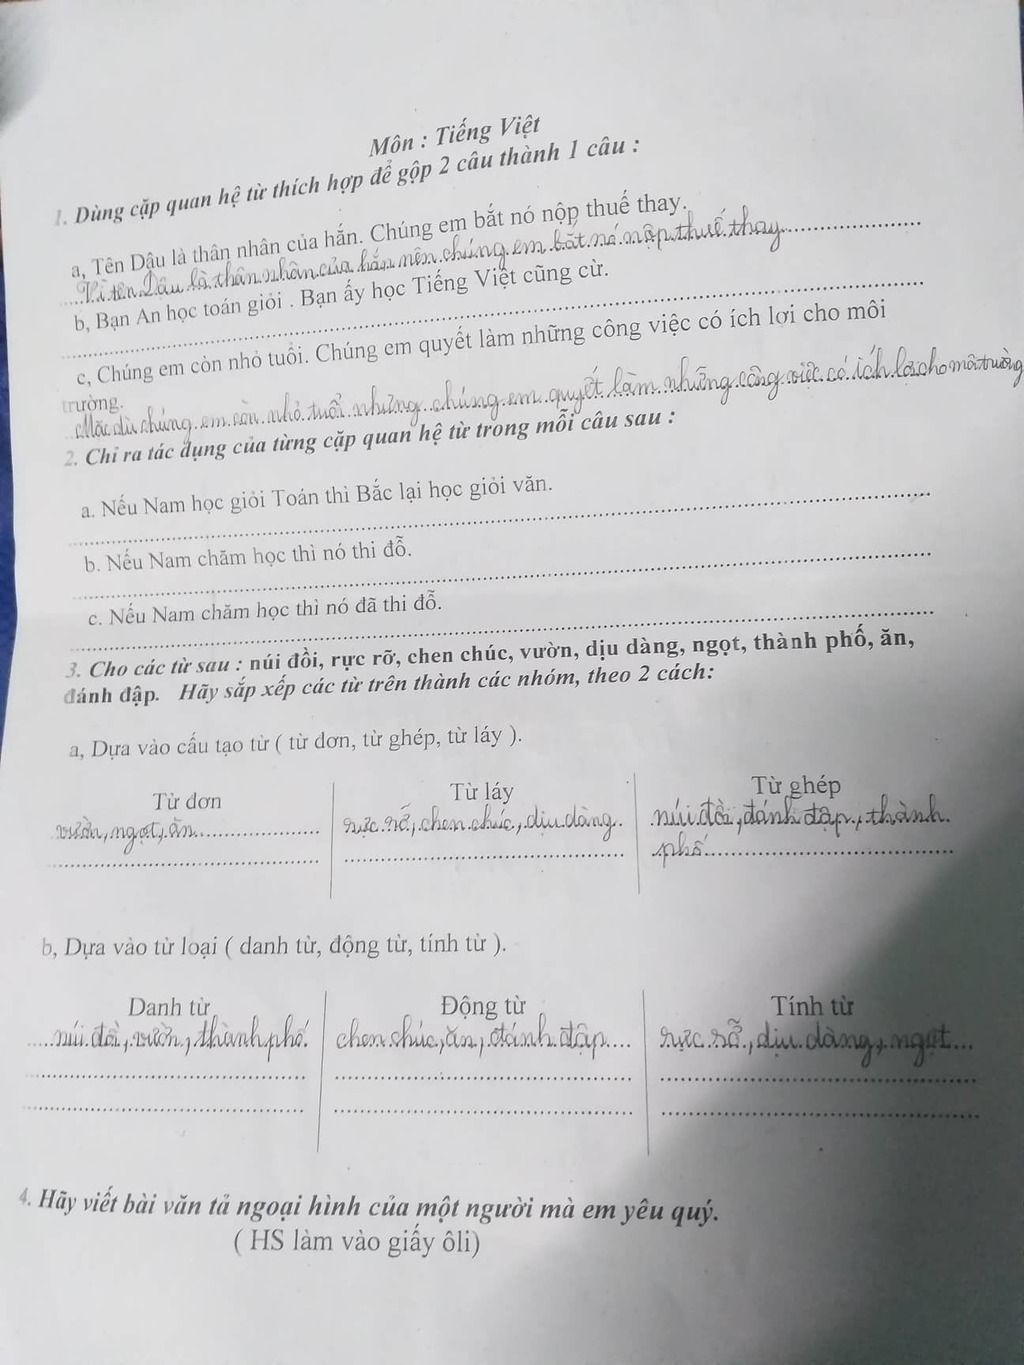 Môn : Tiếng Việt
1. Dùng cặp quan hệ từ thích hợp để gộp 2 câu thành 1 câu :
a, Tên Dậu là thân nhân của hắn. Chúng em bắt nó nộp thuế thay.
Vì tên Dậu là thân nhân của hắn nên chúng em bắt nó nộp thuế thay
b, Bạn An học toán giỏi . Bạn ấy học Tiếng Việt cũng cừ.
c, Chúng em còn nhỏ tuổi. Chúng em quyết làm những công việc có ích lợi cho môi
trường.
Mặc dù chúng em còn nhỏ tuổi nhưng chúng em quyết làm những công việc có ích lợi cho môi trường
2. Chỉ ra tác dụng của từng cặp quan hệ từ trong mỗi câu sau :
a. Nếu Nam học giỏi Toán thì Bắc lại học giỏi văn.
b. Nếu Nam chăm học thì nó thi đỗ.
c. Nếu Nam chăm học thì nó đã thi đỗ.
3. Cho các từ sau : núi đồi, rực rỡ, chen chúc, vườn, dịu dàng, ngọt, thành phố, ăn,
đánh đập. Hãy sắp xếp các từ trên thành các nhóm, theo 2 cách:
a, Dựa vào cấu tạo từ ( từ đơn, từ ghép, từ láy ).
Từ đơn Từ láy Từ ghép
vườn, ngọt, ăn rực rỡ, chen chúc, dịu dàng núi đồi, đánh đập, thành
phố
b, Dựa vào từ loại ( danh từ, động từ, tính từ ).
Danh từ Động từ Tính từ
núi đồi, vườn, thành phố chen chúc, ăn, đánh đập rực rỡ, dịu dàng, ngọt
4. Hãy viết bài văn tả ngoại hình của một người mà em yêu quý.
( HS làm vào giấy ôli)